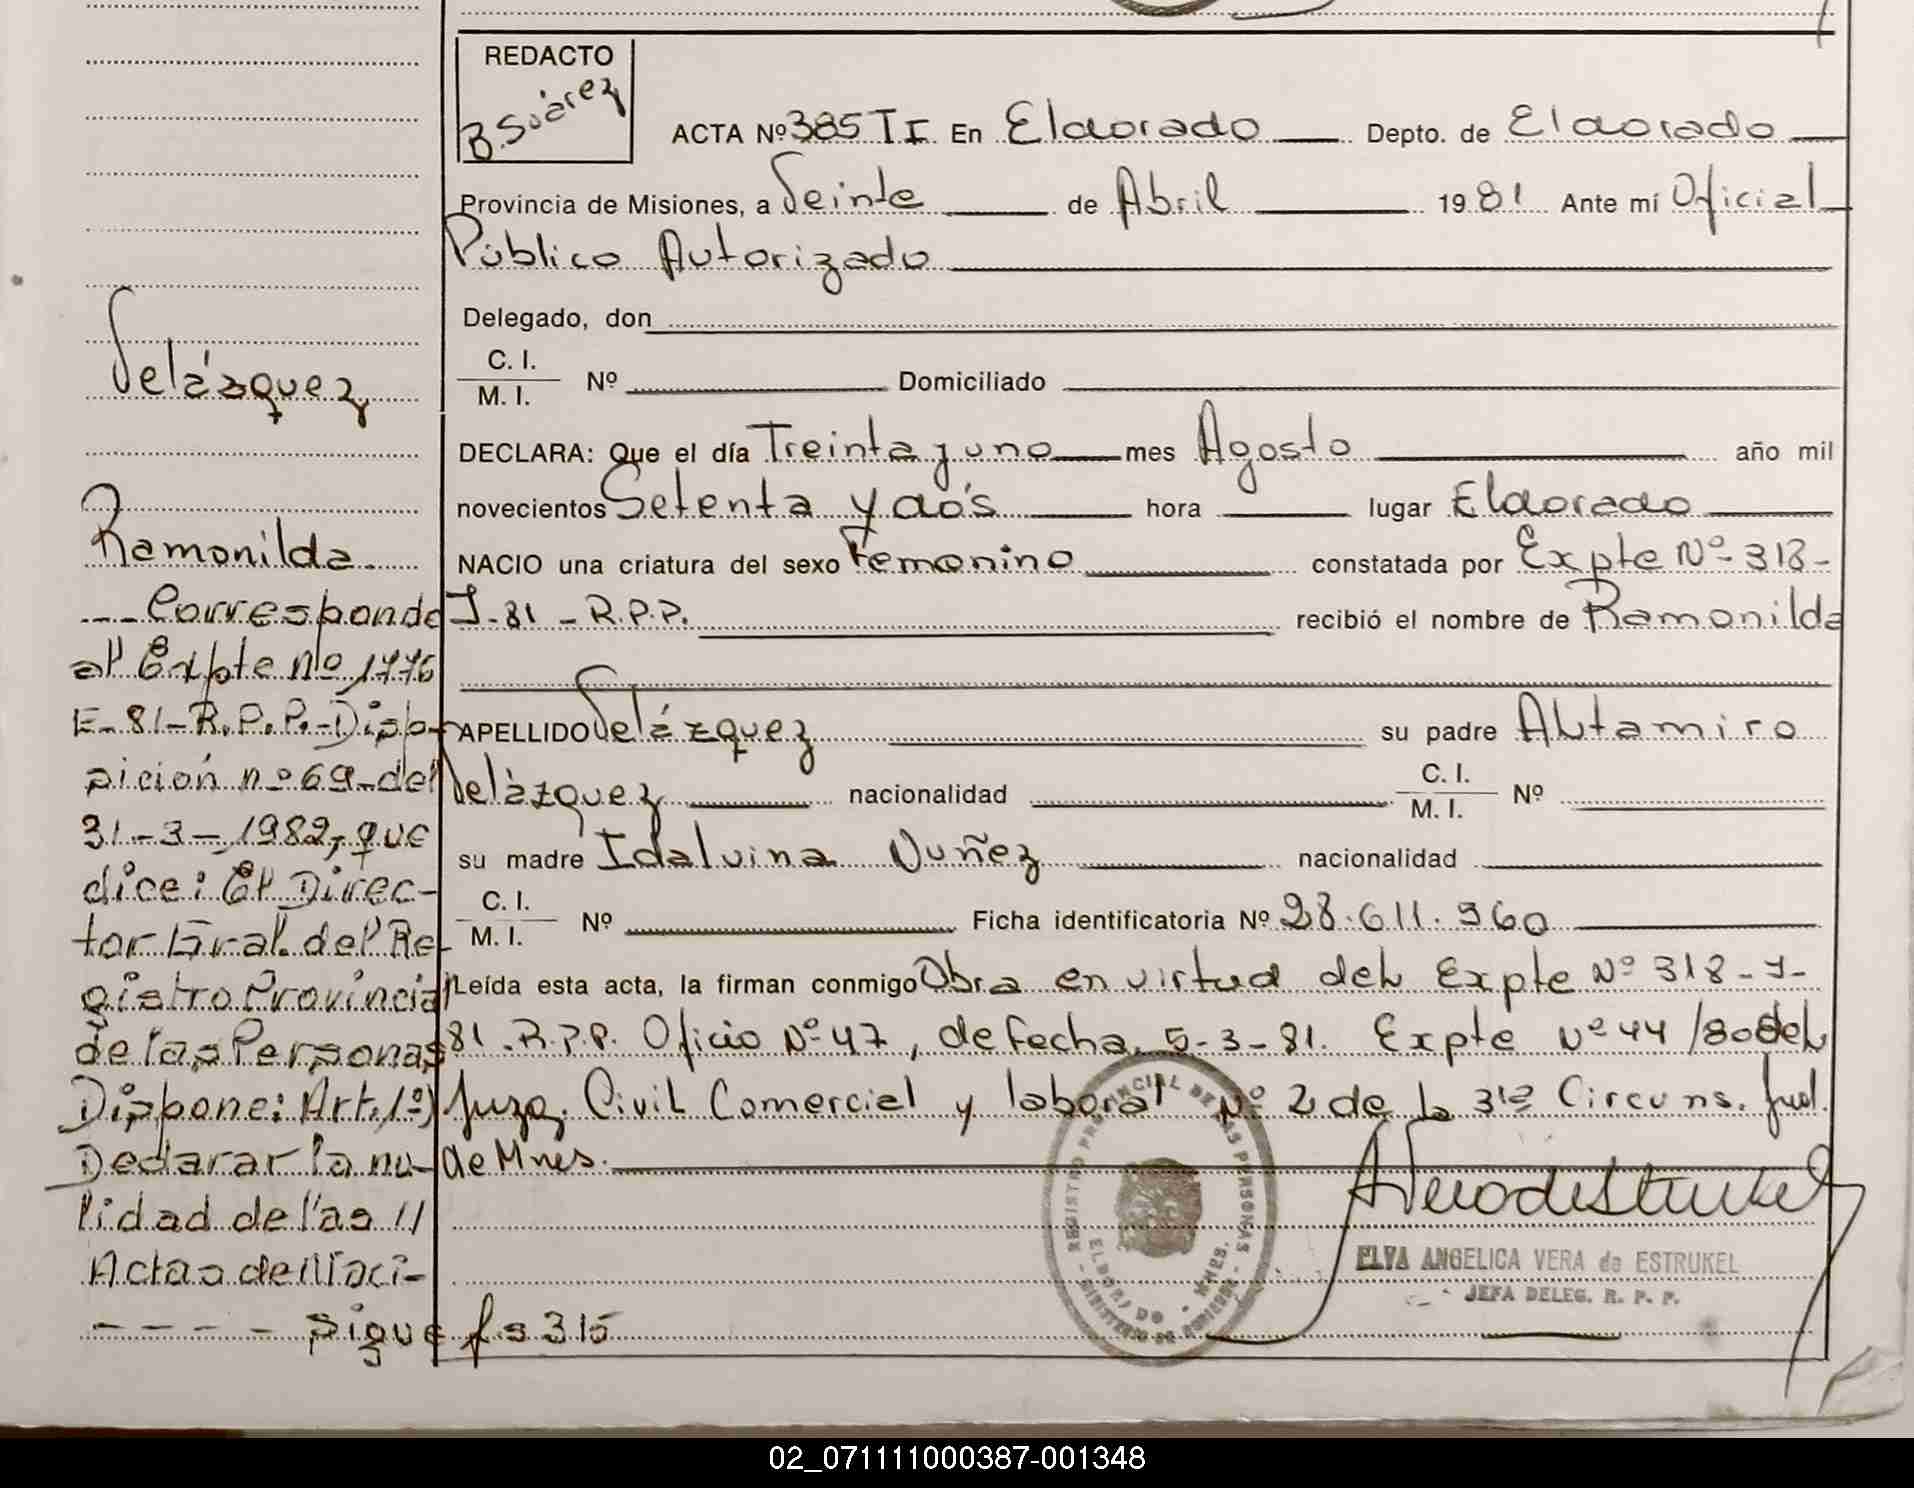 REDACTO
B. Suárez
ACTA Nº 385 II En Eldorado Depto. de Eldorado
Provincia de Misiones, a Veinte de Abril 1981 Ante mí Oficial
Público Autorizado
Delegado, don
C. I.
M. I. Nº Domiciliado
DECLARA: Que el día Treinta y uno mes Agosto año mil
novecientos Setenta y dós hora lugar Eldorado
NACIO una criatura del sexo Femenino constatada por Expte Nº 318-
J-81-R.P.P. recibió el nombre de Ramonilda
APELLIDO Velázquez su padre Altamiro
Velázquez nacionalidad C. I.
M. I. Nº
su madre Idalvina Nuñez nacionalidad
C. I.
M. I. Nº Ficha identificatoria Nº 28.611.960
Leída esta acta, la firman conmigo Obra en virtud del Expte Nº 318-J-
81.R.P.P. Oficio Nº 47, de fecha, 5-3-81. Expte Nº 44/80 del
Juzg. Civil Comercial y laboral Nº 2 de la 3ra Circuns. Jud.
de Mnes.
Velázquez
Ramonilda
---- Corresponde
al Expte Nº 1776
E-81-R.P.P.-Dispo-
sición nº 69-del
31-3-1982, que
dice: El Direc-
tor Gral. del Re-
gistro Provincial
de las Personas
Dispone: Art. 1º)
Declarar la nu-
lidad de las 11
Actas de Naci-
---- sigue fs 315
REGISTRO PROVINCIAL DE LAS PERSONAS - MINISTERIO DE GOBIERNO -
ELDORADO - MNES.
ELVA ANGELICA VERA de ESTRUKEL
JEFA DELEG. R. P. P.
02_071111000387-001348